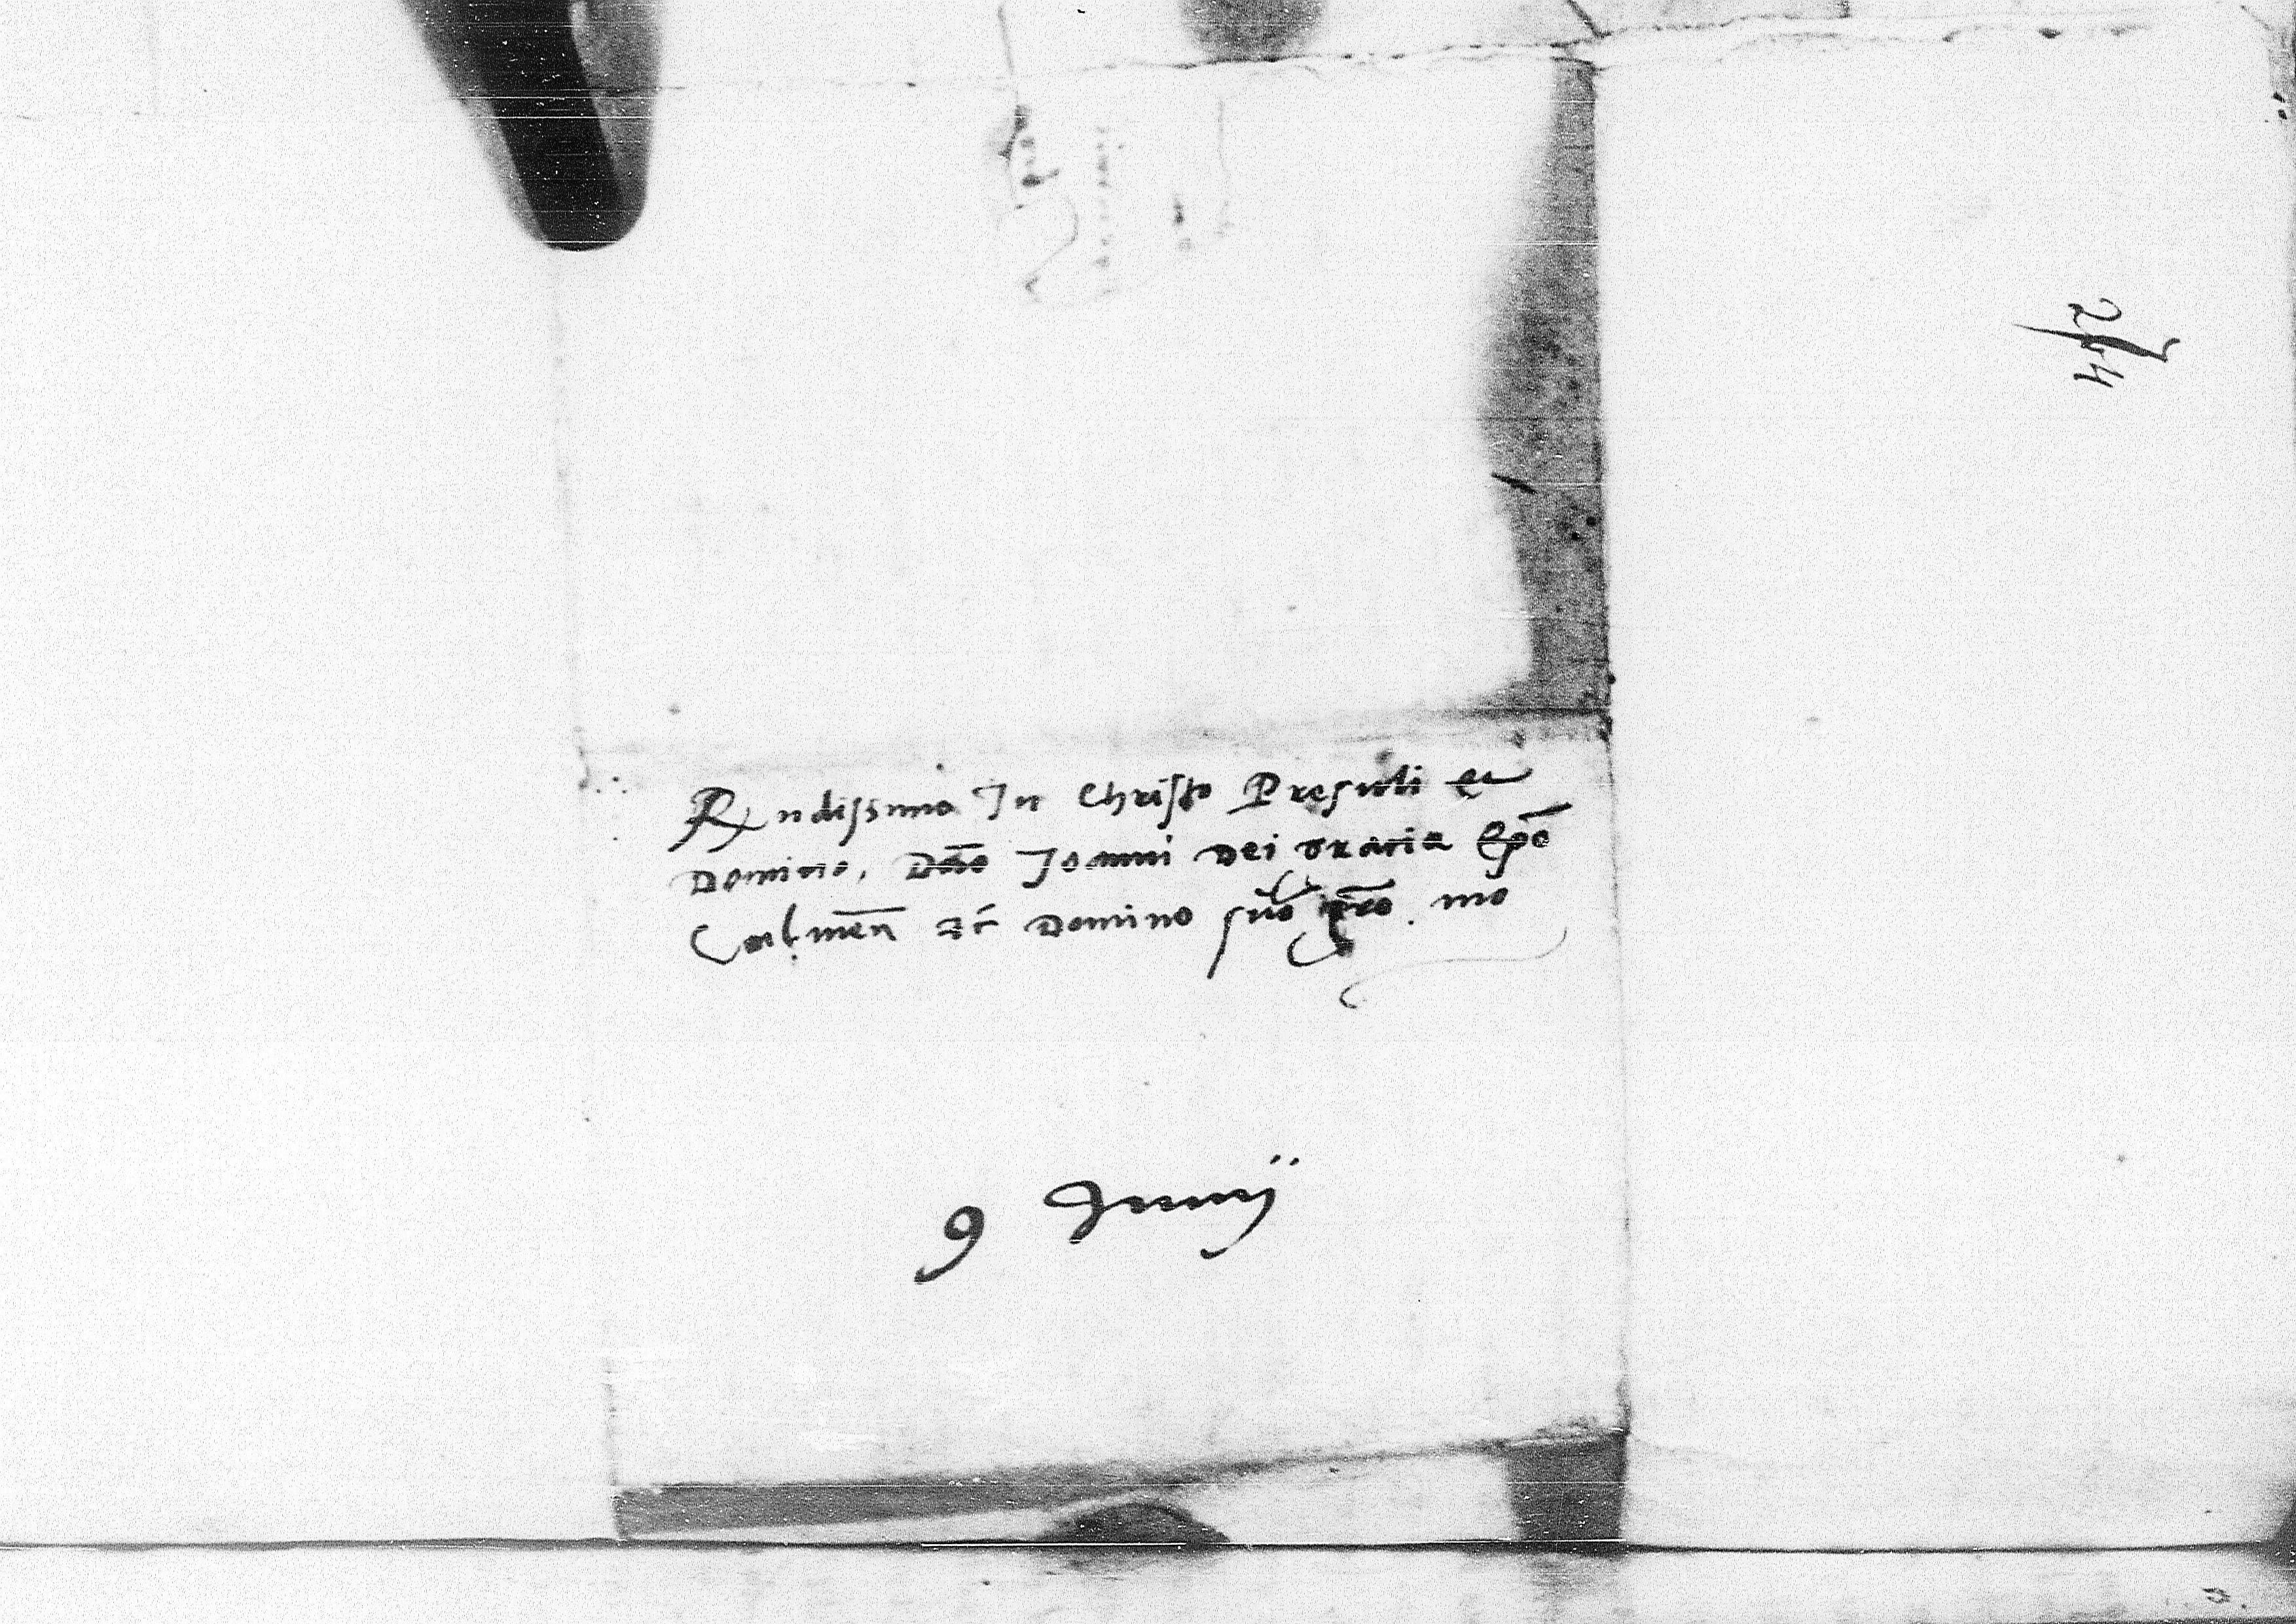 Rndissimo In Christo Presuli et
Domino, Dno Joanni Dei gratia Epo
Culmen ac Domino suo gro. mo
9 Junij
274